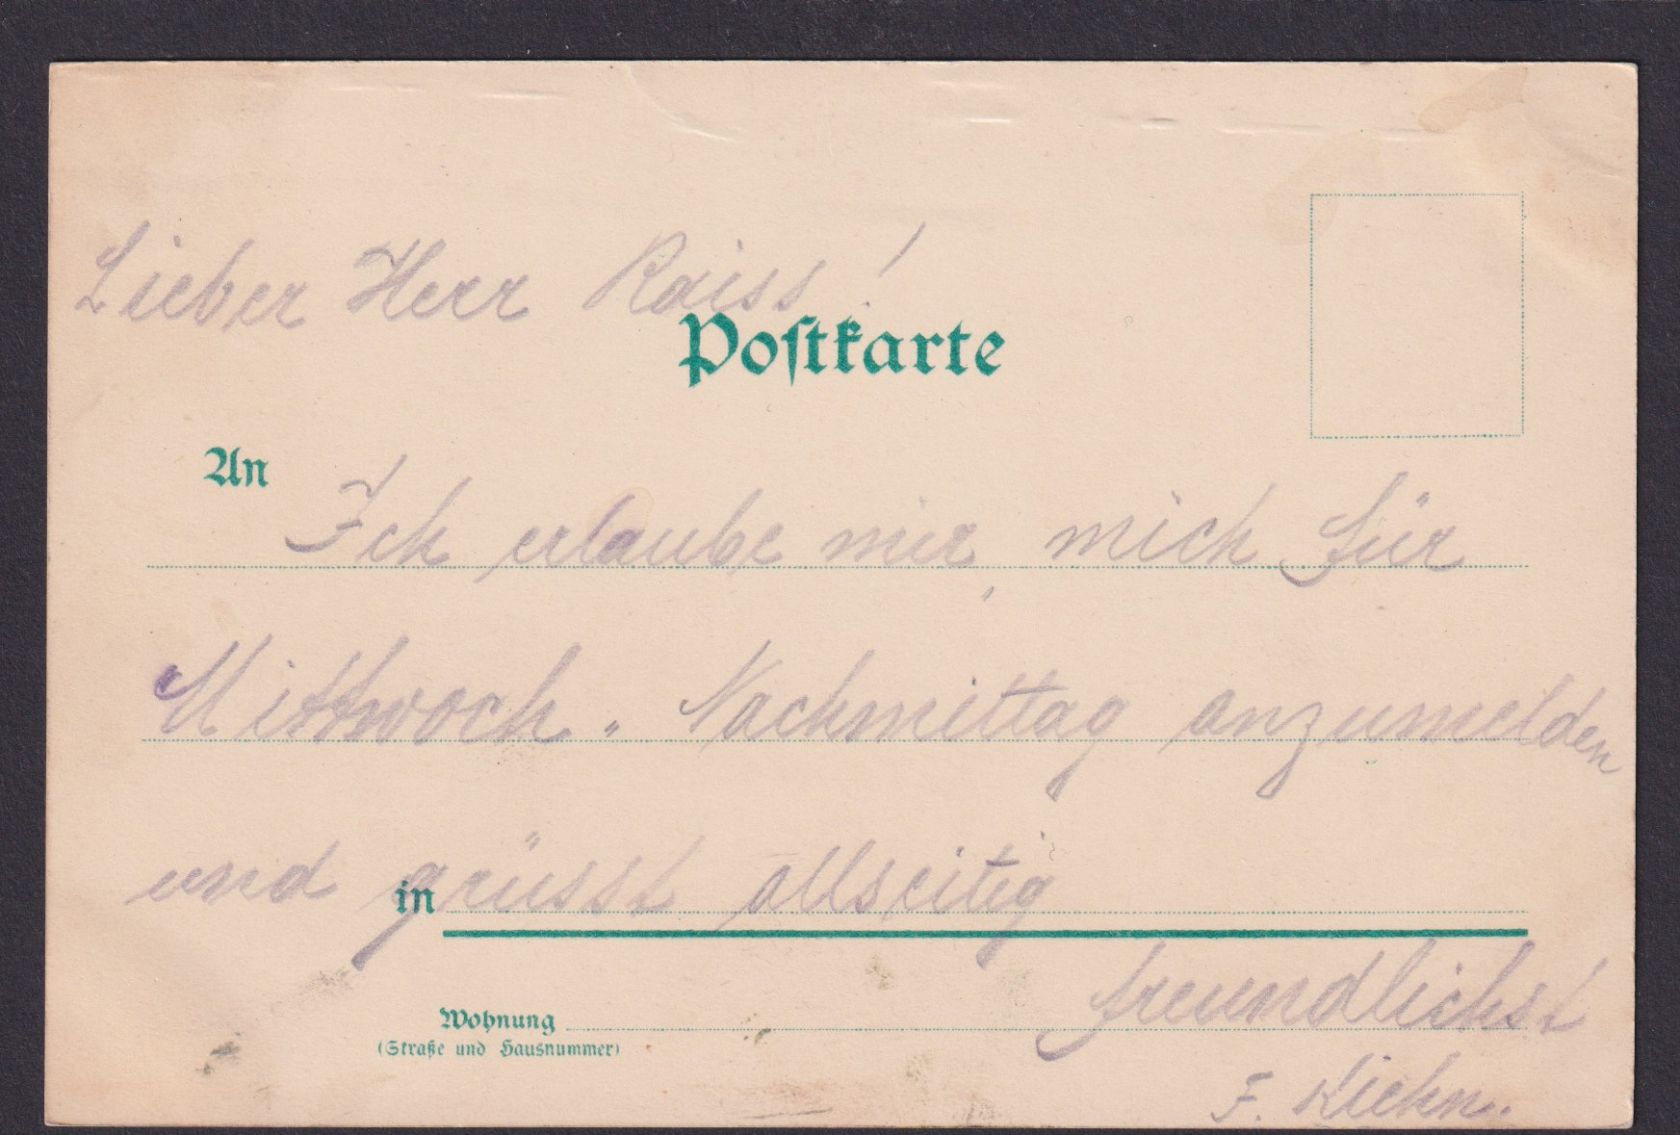 Lieber Herr Raiss!
Postkarte
An
Ich erlaube mir, mich für
Mittwoch. Nachmittag anzumelden
und grüsst allseitig
in
freundlichst
Wohnung
(Straße und Hausnummer)
F. Kiehn.